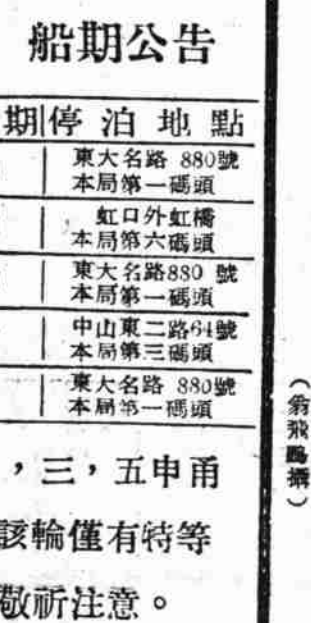 船期公告
期 停泊地點
東大名路 880號
本局第一碼頭
虹口外虹橋
本局第六碼頭
東大名路880 號
本局第一碼頭
中山東二路64號
本局第三碼頭
東大名路 880號
本局第一碼頭
，三，五申甬
該輪僅有特等
敬祈注意。
（翁飛鵬攝）